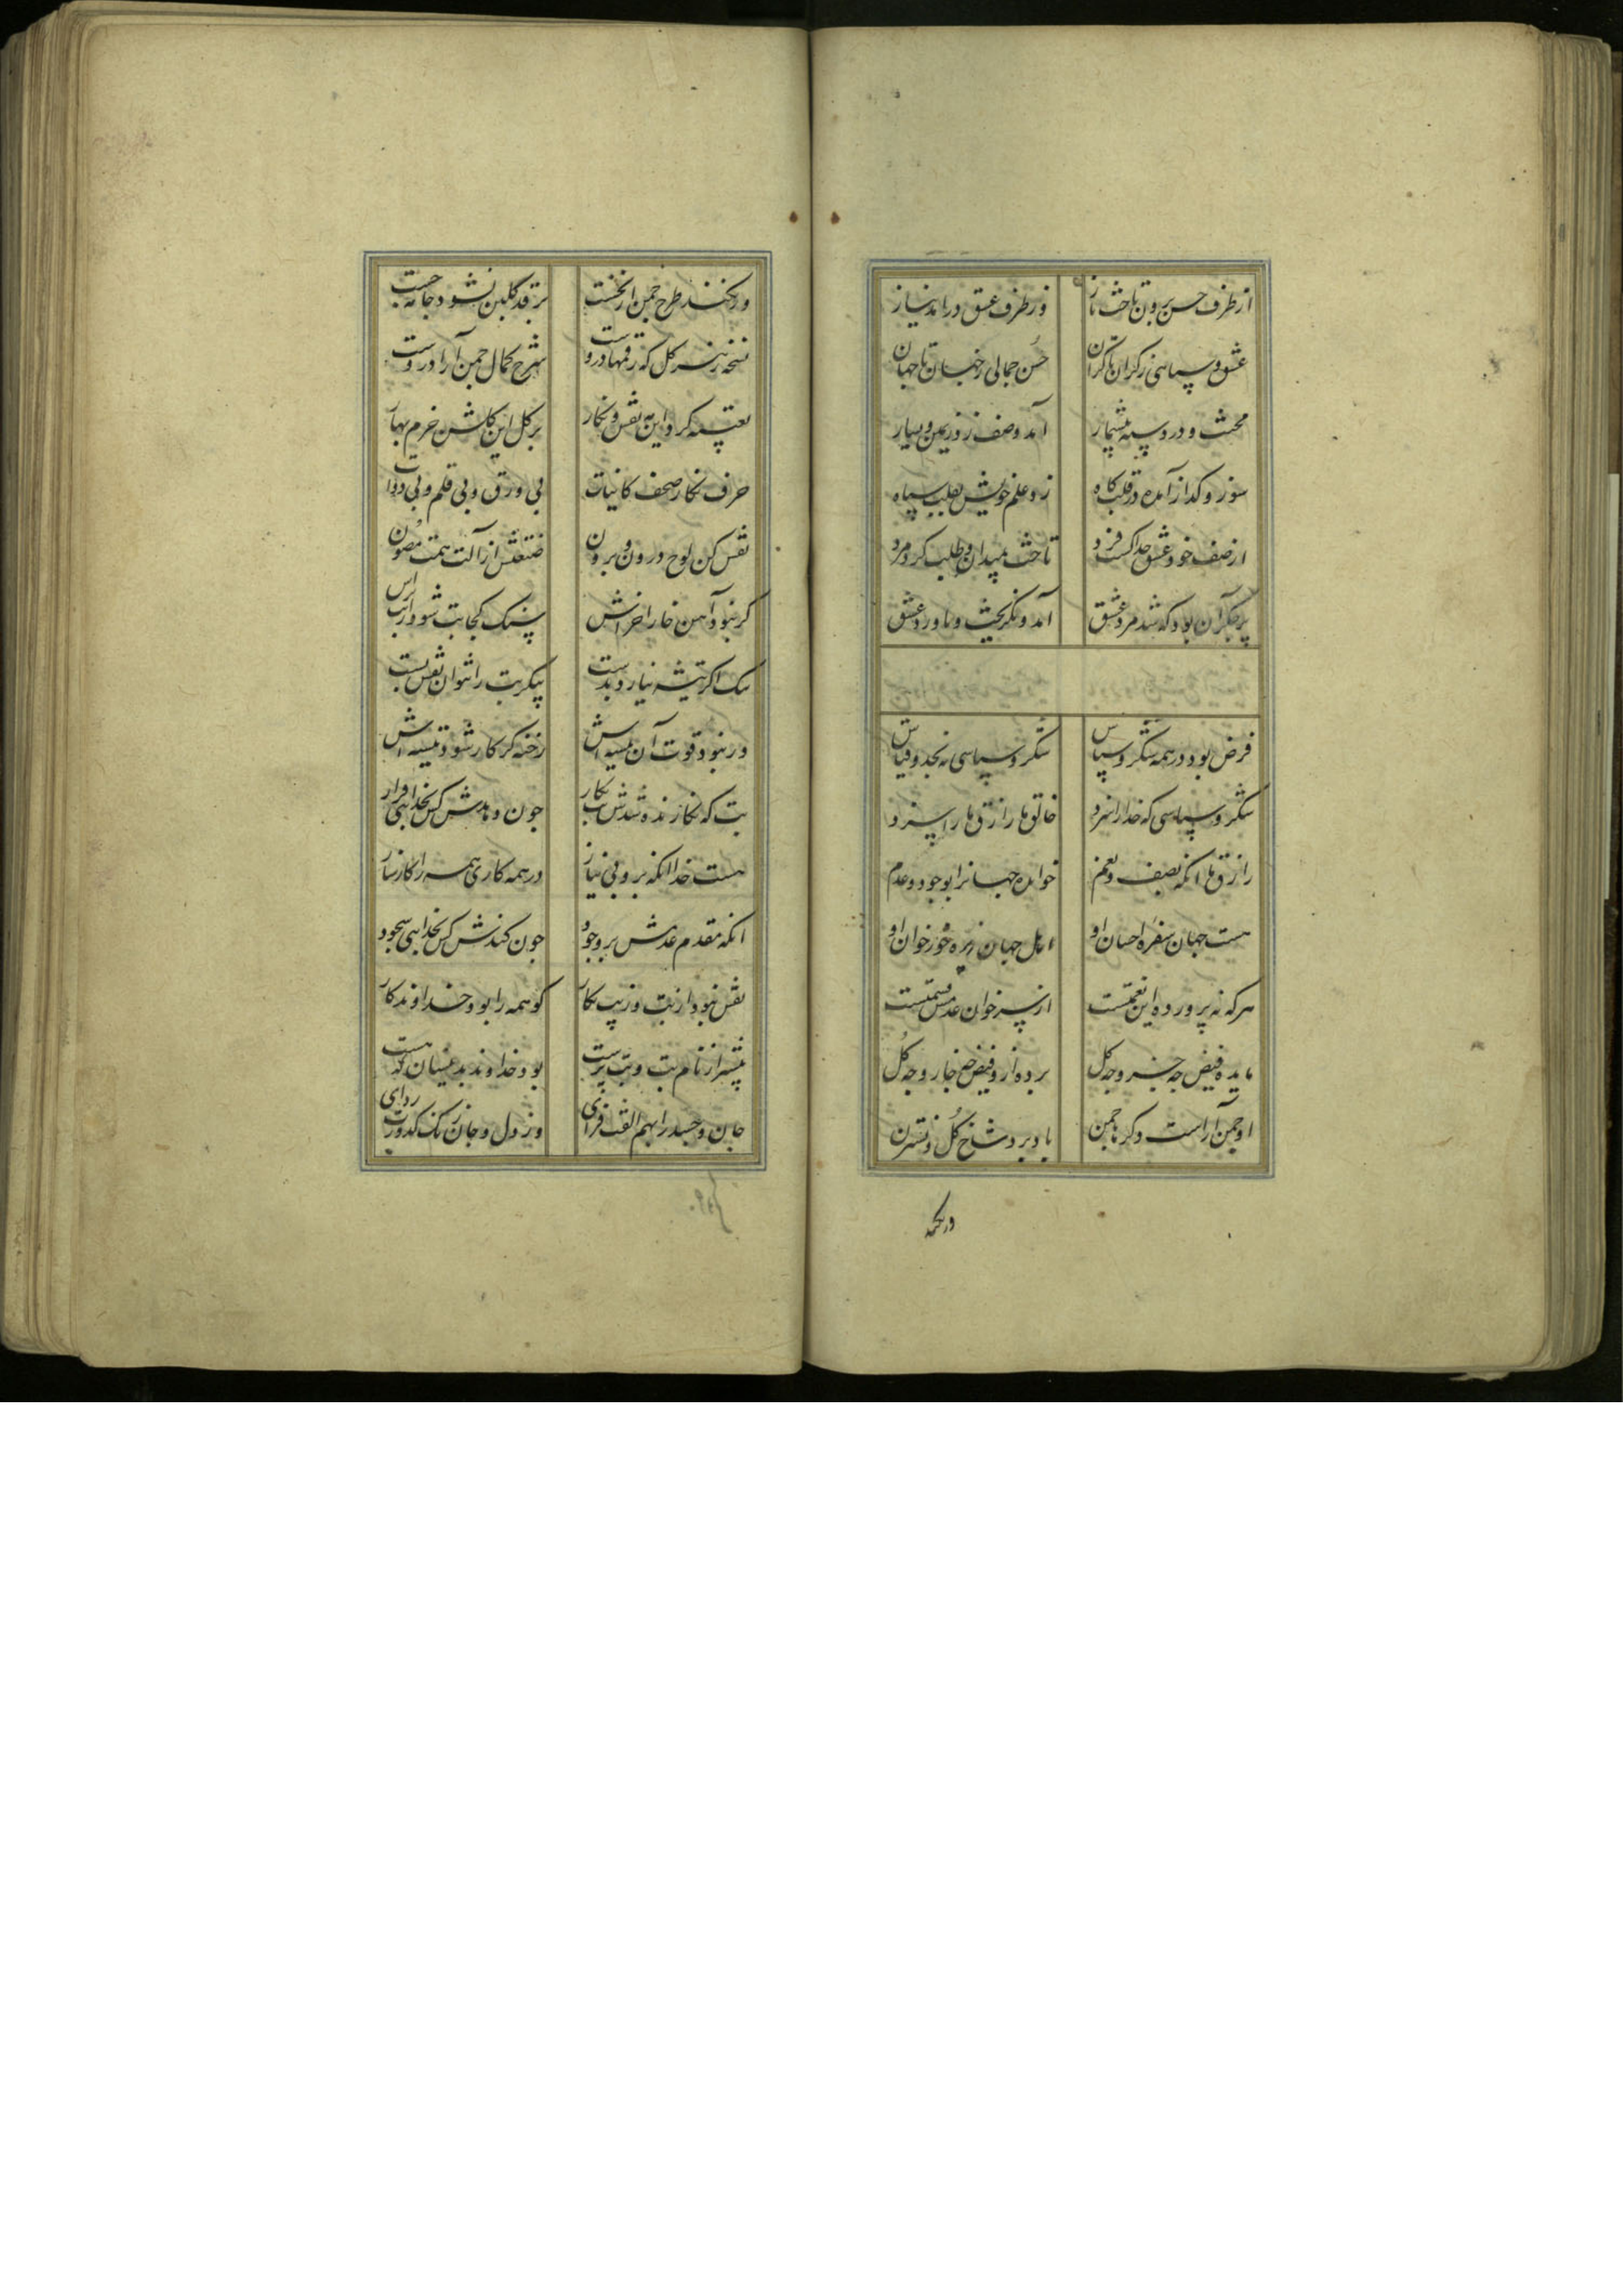 از طرف حسن برون تاخت ناز وز طرف عشق درآمد نیاز
عشق و سپاسی ز کران تا کران حسن جمالی ز جهان تا جهان
محنت و درد و سپه بیشمار آمد و صف زد ز یمین و یسار
سوز و کداز آمده در قلبکاه زد علم خویش بقلب سپاه
از صف خود عشق جدا کشت فرد تاخت بمیدان و طلب کرد مرد
پر جکر آن بود که شد مرد عشق آمد و نکریخت ز ناورد عشق
فرض بود در همه شکر و سپاس شکر و سپاسی نه بحد و قیاس
شکر و سپاسی که خدا را سزد خالق ما رازق ما را سزد
رازق ما آنکه بصیف و نعم خوانده جهانرا بوجود و عدم
هست جهان سفره احسان او اهل جهان زیره خور خوان او
هرکه نه پرورده این نعمتست از سر خوان عدمش قسمتست
مایده فیض چه جزو چه کل برده ازو فیض چه خار و چه کل
او چمن آراست دکر ما چمن باد برد شاخ کل و نسترن
در نکند
ور نکند طرح چمن از نخست بر قد کلبن نشود جامه چست
نسخه هر کل که رقمها دروست شرح کمال چمن آرا دروست
تعبیه کرد این همه نقش و نکار بر کل این کلشن خرم بهار
حرف نکار صحف کاینات بی ورق و بی قلم و بی دوات
نقش کن لوح درون و برون صنعتش از آلت همت مصون
کر نبود آهن خارا خراش سنک کجا بت شود از بت تراش
سنک اکر تیشه نیارد بدست پیکر بت را نتوان نقش بست
ور نبود قوت آن تیشه اش رخنه کر کار شود تیشه اش
بت که نکارنده شدش بت نکار چون دهدش کس بخدایی قرار
هست خدا آنکه برو بی نیاز در همه کاری همه را کارساز
آنکه مقدم عدمش بر وجود چون کندش کس بخدایی سجود
نقش نبود از بت و از بت نکار کو همه را بود خداوندکار
پیشتر از نام بت و بت پرست بود خداوند بدینسان که هست
جان و جسد را بهم الفت فزای وز دل و جان زنک کدورت زدای